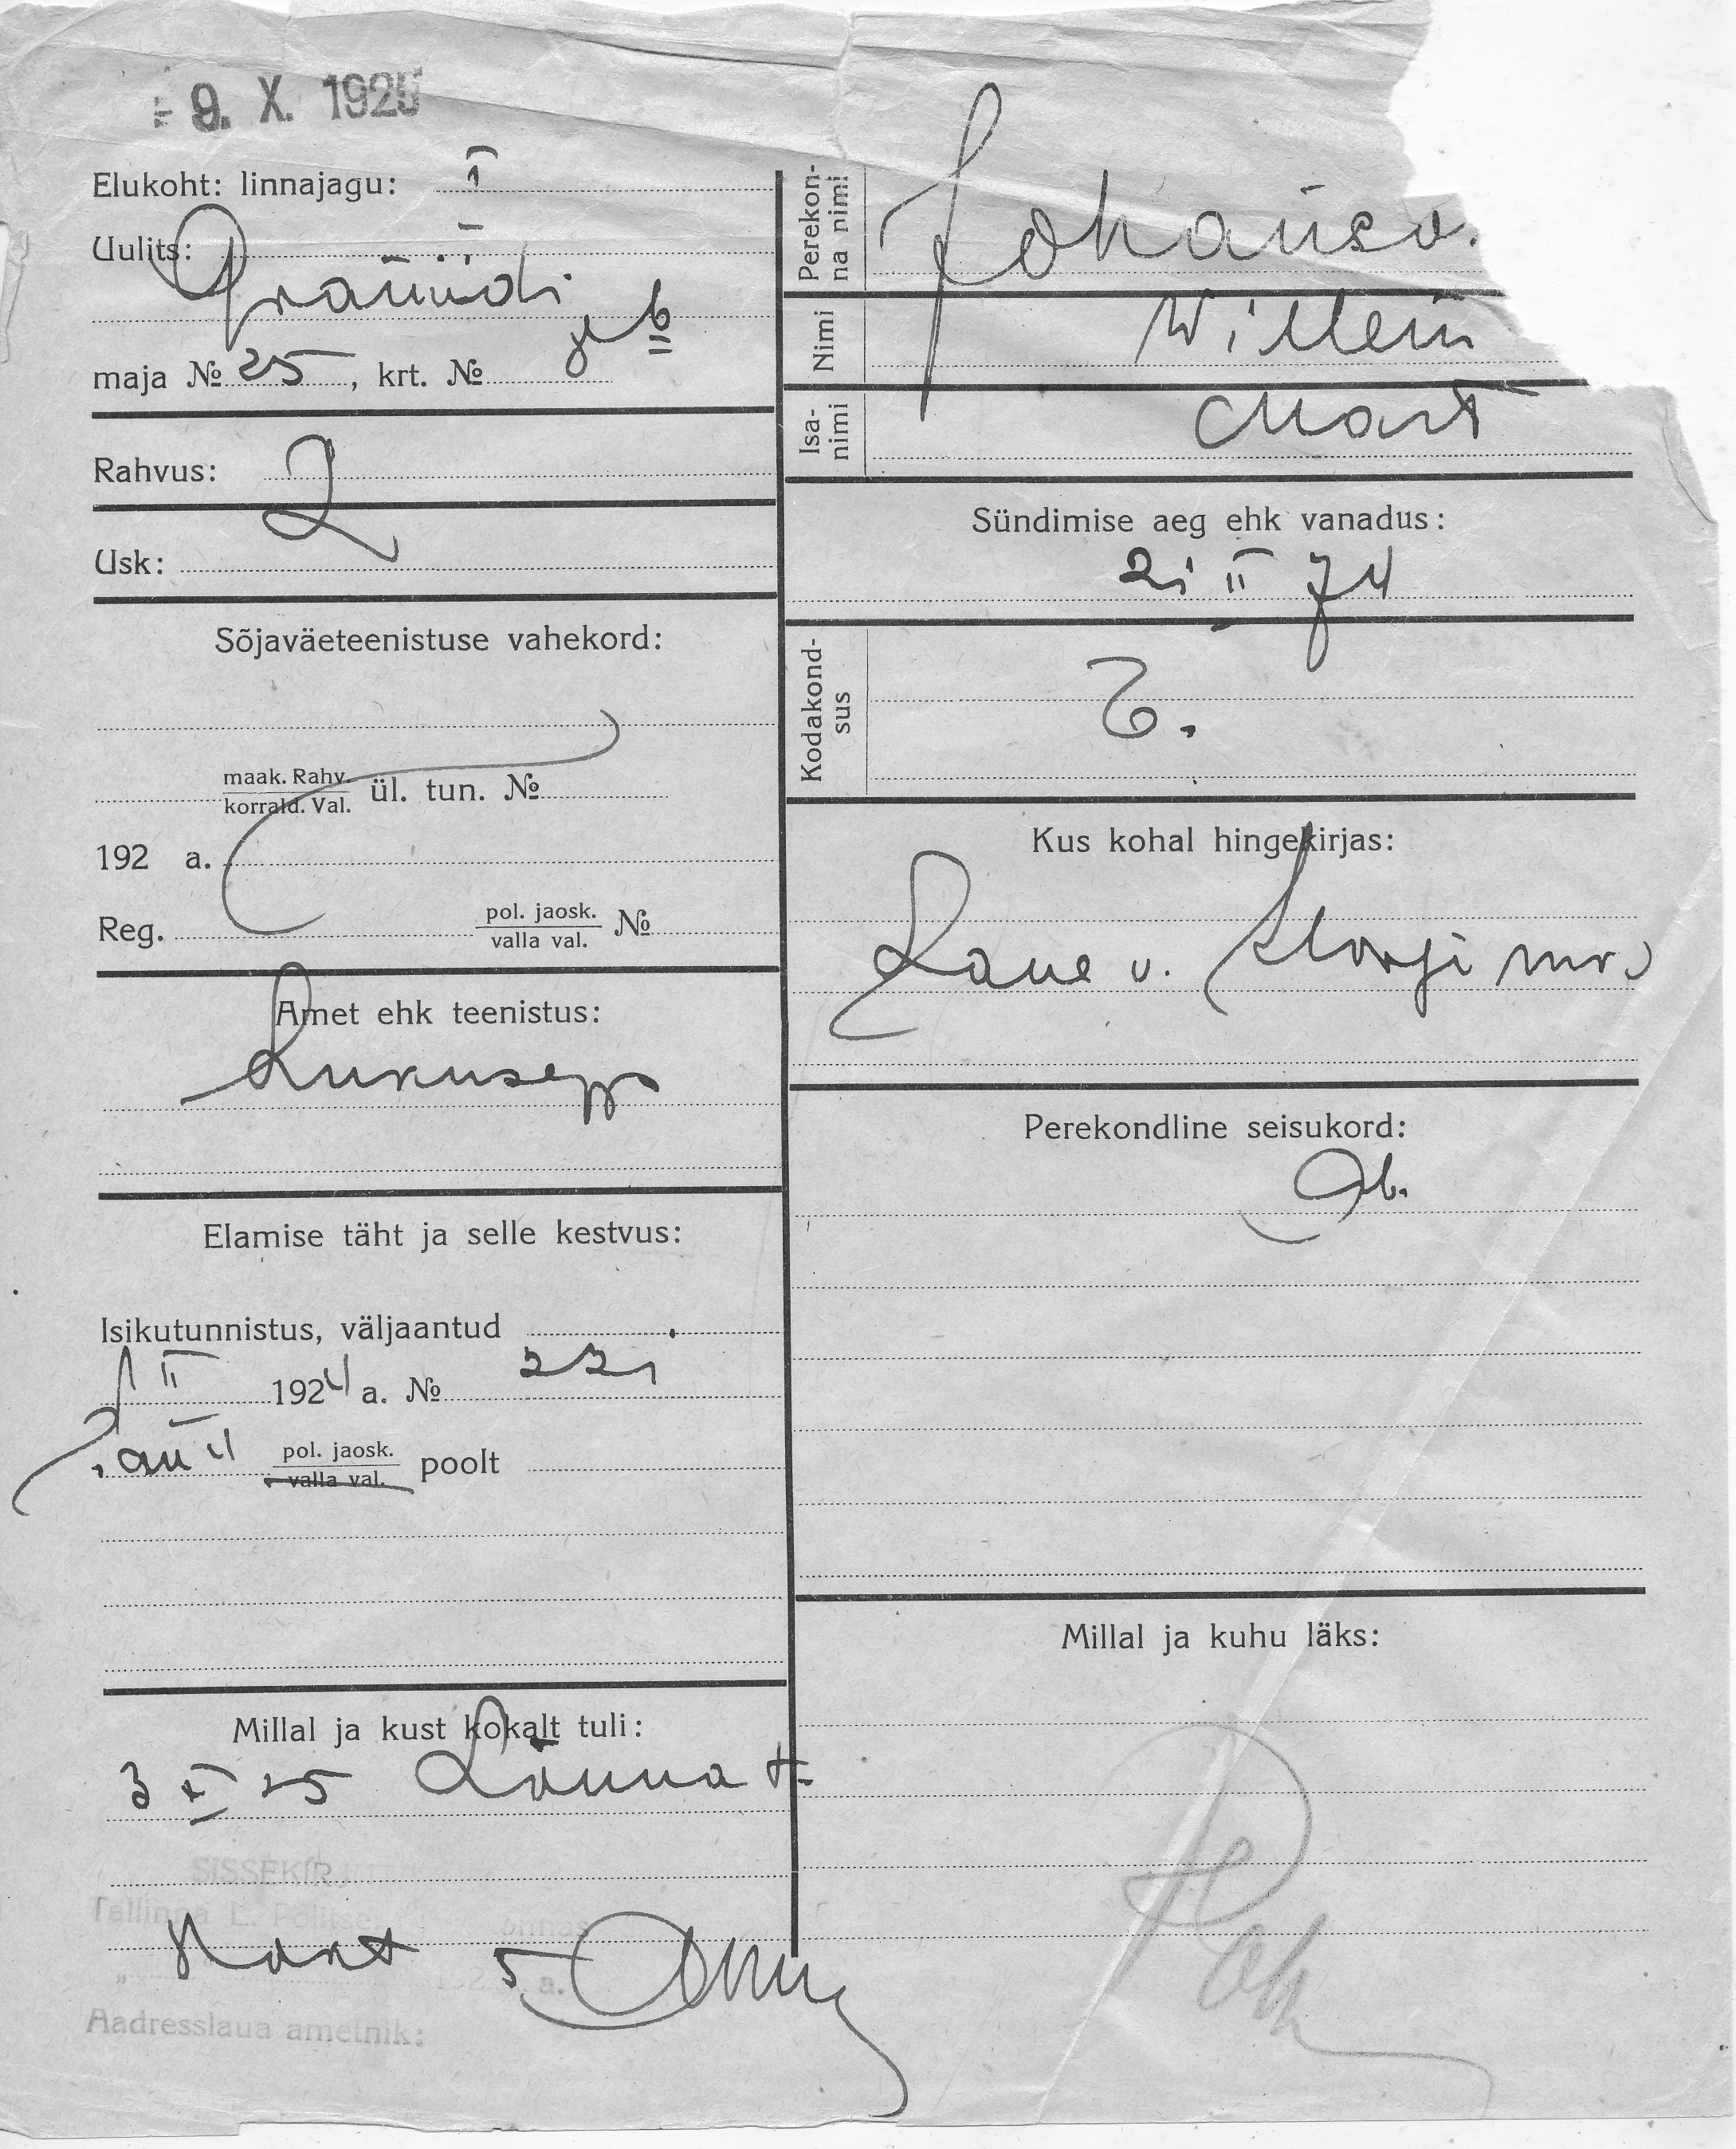 - 9. X. 1925
Elukoht: linnajagu: I
Uulits:
maja № 25, krt. № 6
Rahvus:
Usk:
Sõjaväeteenistuse vahekord:
maak. Rahv.
korrald. Val. ül. tun. №
192 a.
Reg. pol. jaosk. №
valla val.
Amet ehk teenistus:
Lukusepp
Elamise täht ja selle kestvus:
Isikutunnistus, väljaantud
II 1924 a. № 221
pol. jaosk. poolt
valla val.
Millal ja kust kokalt tuli:
3 X 25
SISSEKIR
Tallinna L. Politsei
Aadresslaua ametnik:
Perekon-
na nimi Johanso
Nimi Willem
Isa-
nimi Mart
Sündimise aeg ehk vanadus:
21 II 74
Kodakond-
sus E.
Kus kohal hingekirjas:
v.
Perekondline seisukord:
ab.
Millal ja kuhu läks: